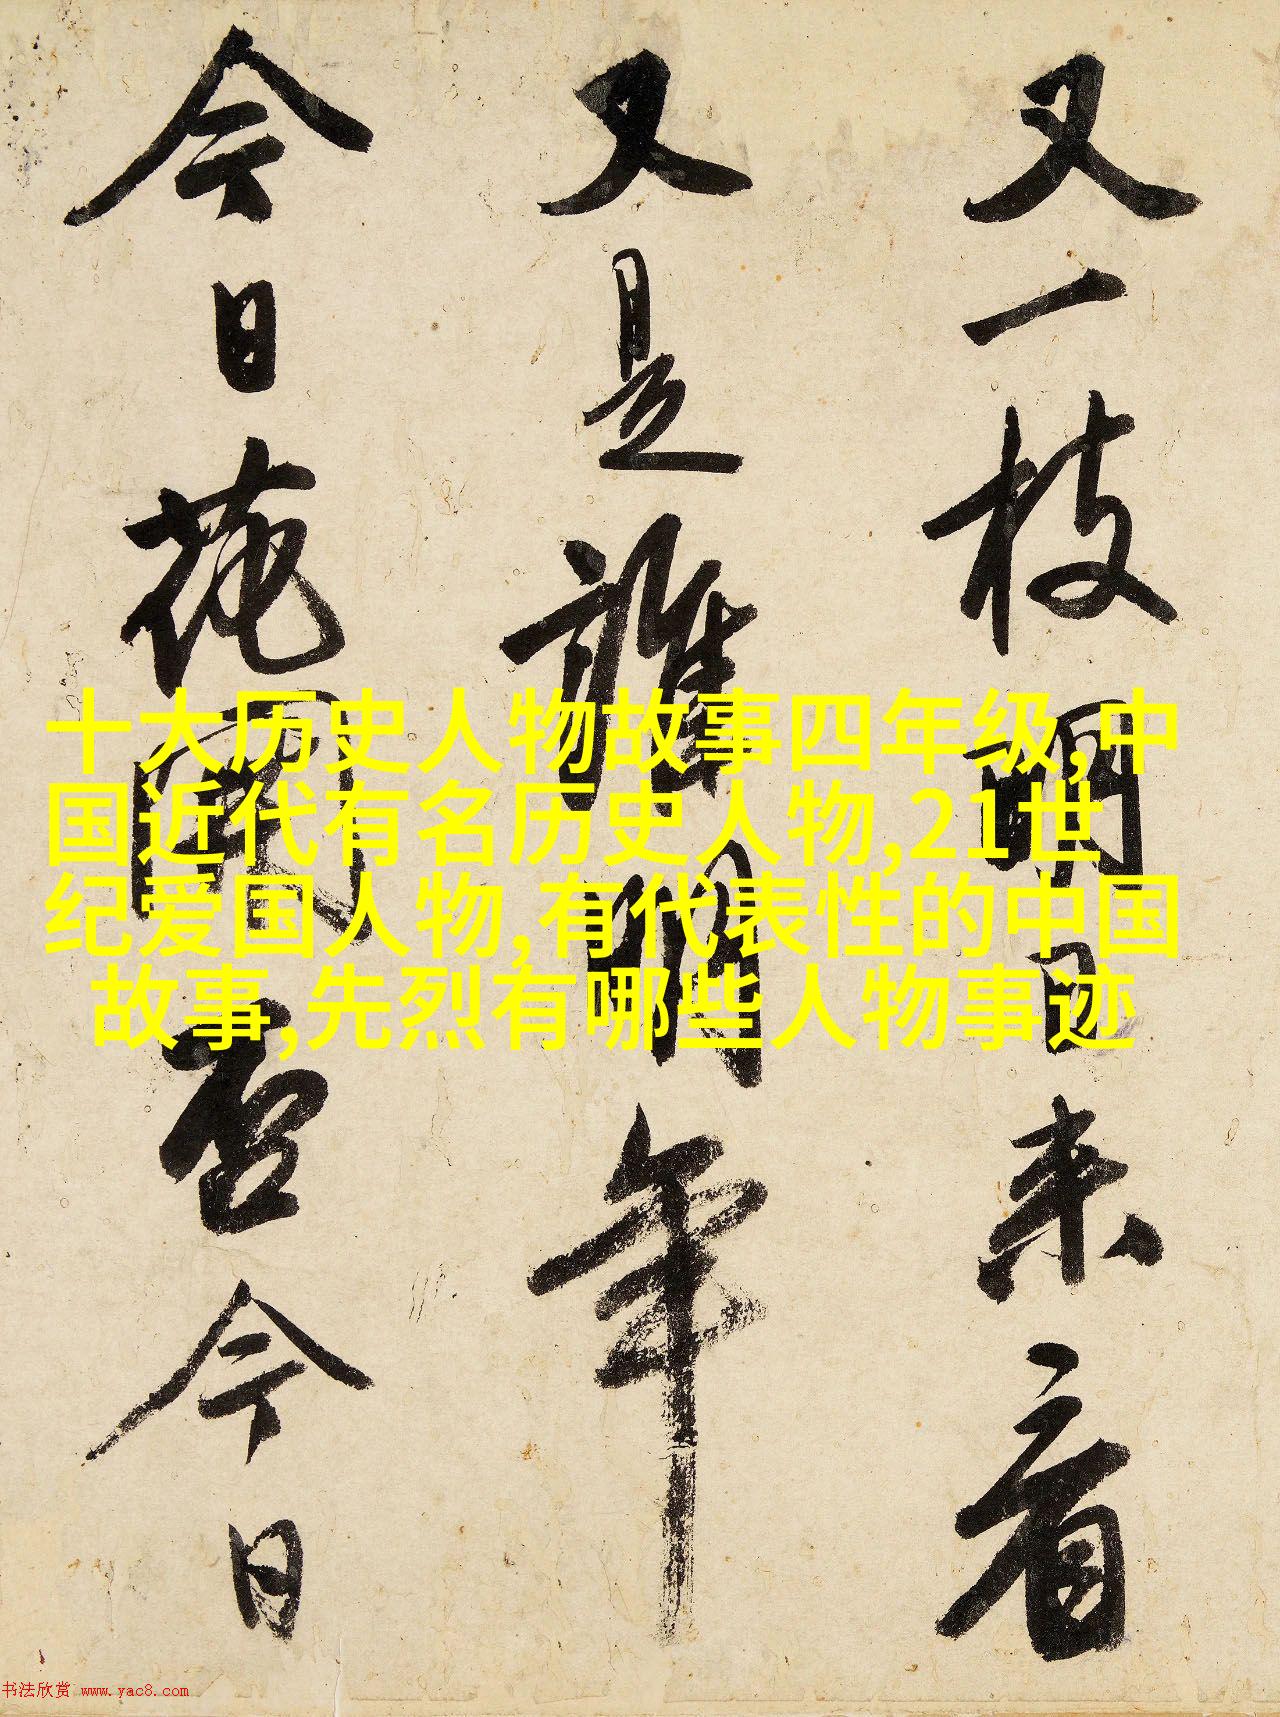 又一枝明日来看
又是誰明年
今日花開否今日
十大历史人物故事四年级,中
国近代有名历史人物,21世
纪爱国人物,有代表性的中国
故事,先烈有哪些人物事迹
书法欣赏 www.yac8.com